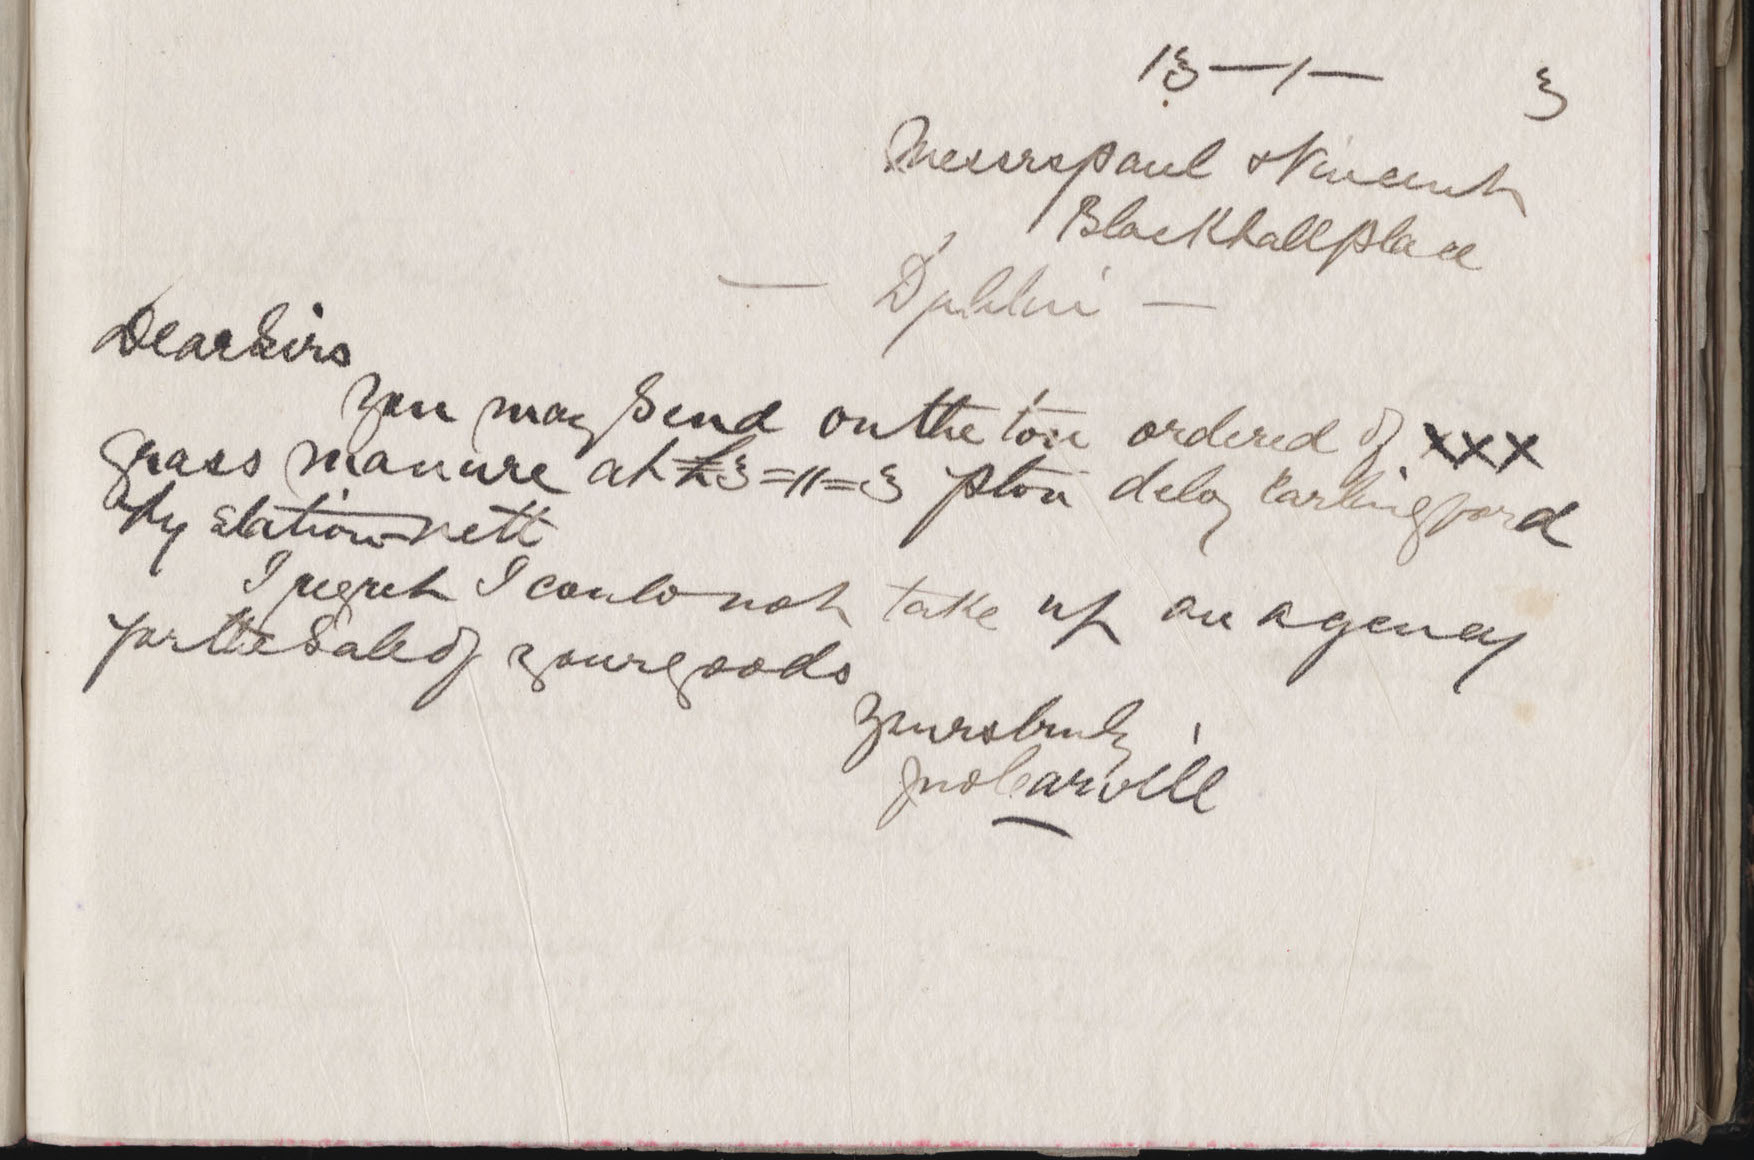 13 — 1 — 3
Messrs Paul & Vincent
Blackhall place
— Dublin —
Dear Sirs
You may Send on the ton ordered of xxx
grass manure at £3=11=3 p ton dely Carlingford
Ry Station nett
I regret I could not take up an agency
for the Sale of your goods
Yours truly
Jno Carvill